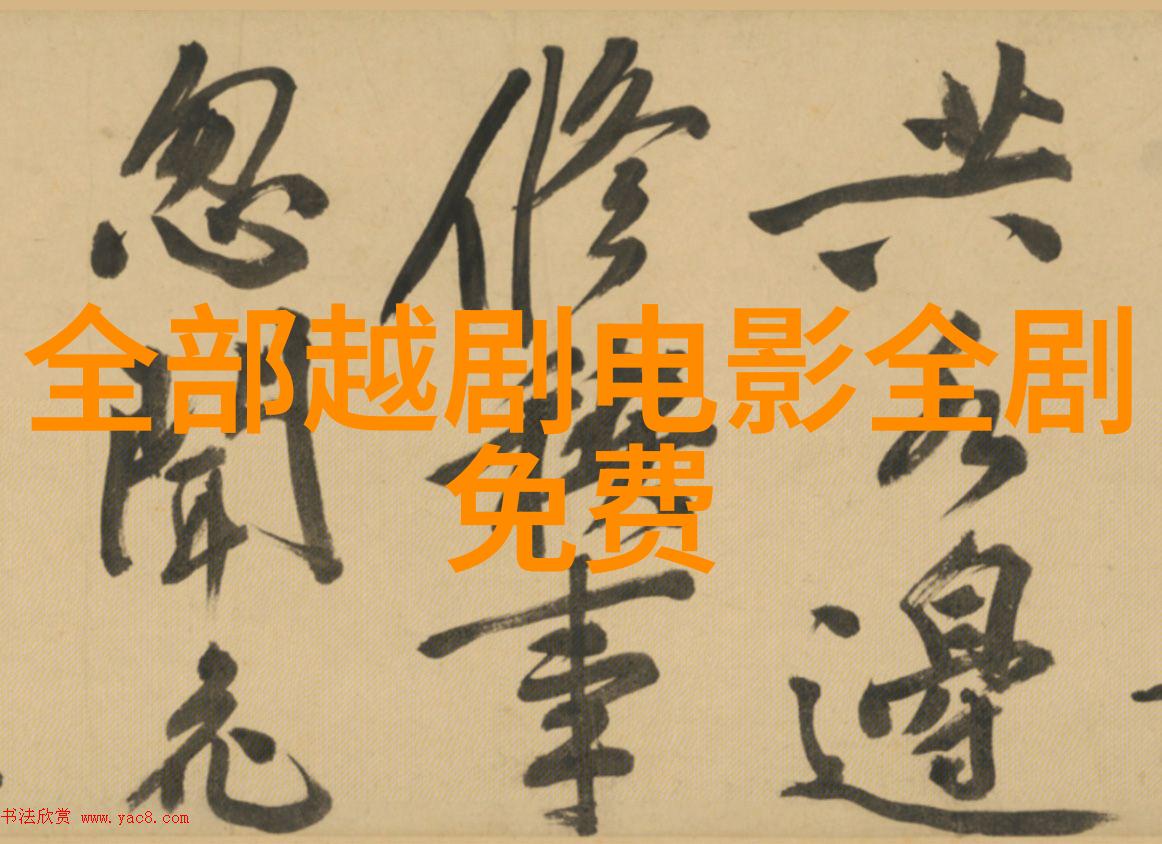 全部越剧电影全剧
免费
共邊
修事
忽聞
书法欣赏 www.yac8.com